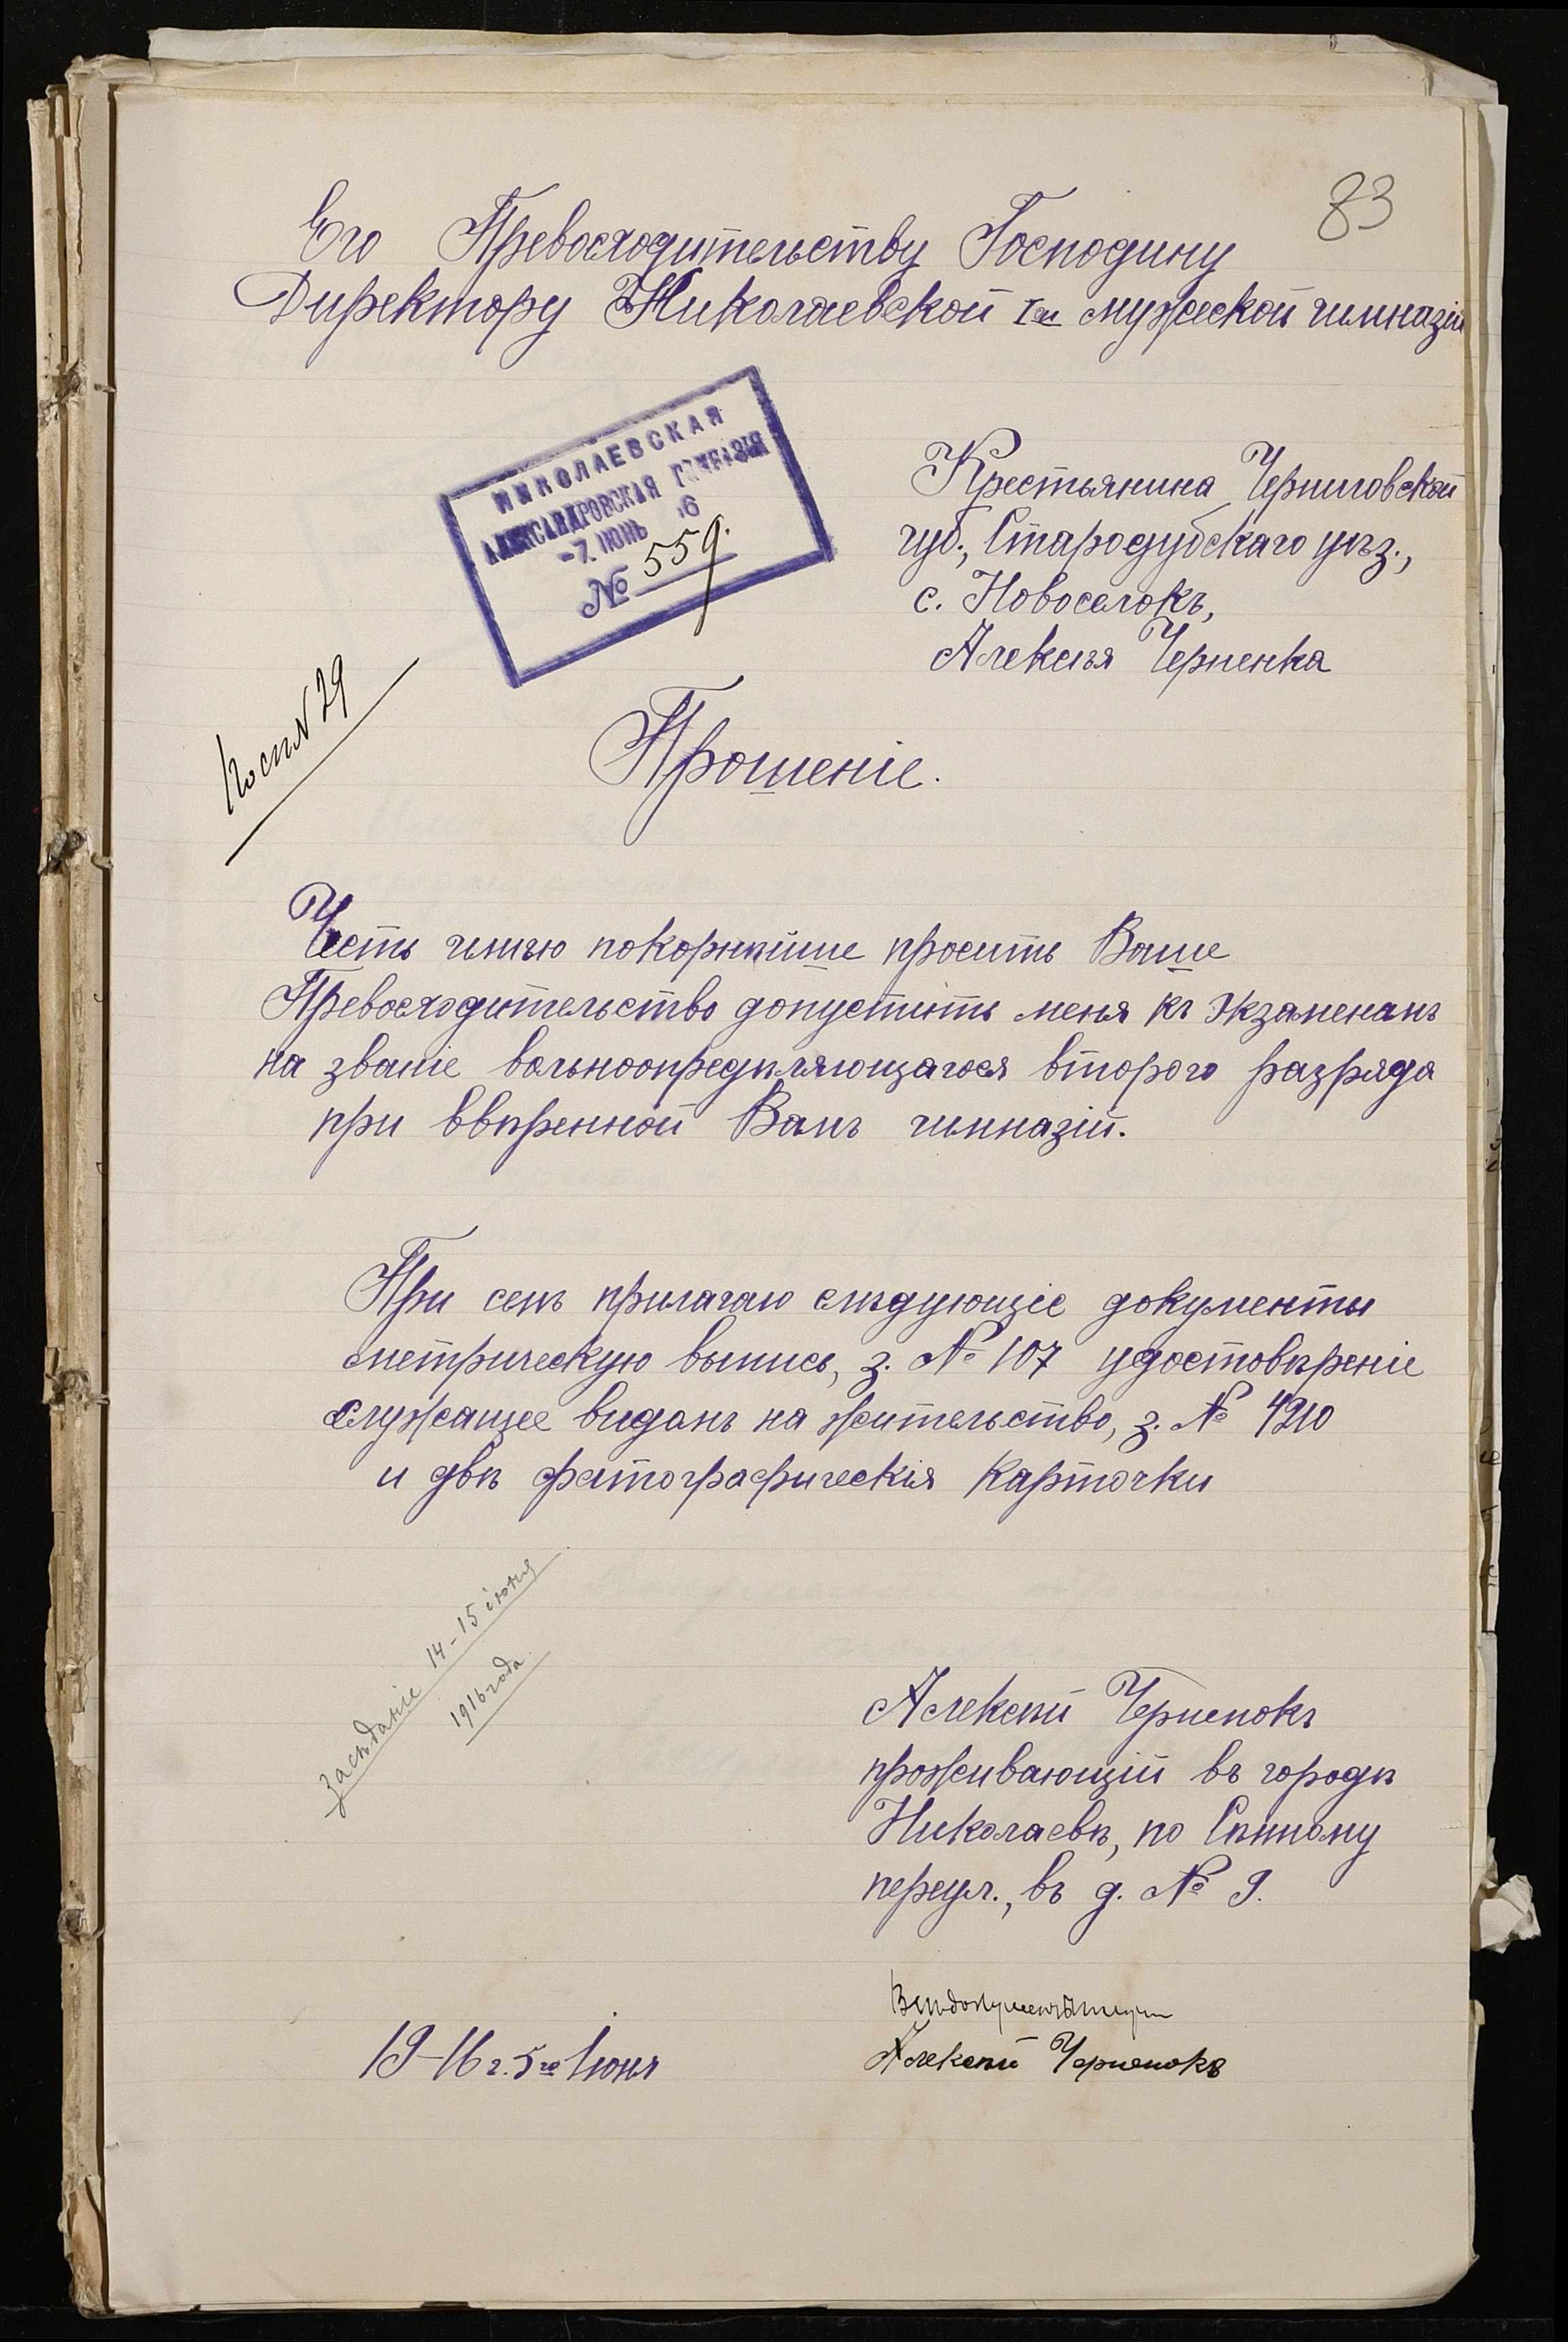 83
Его Превосходительству Господину
Директору Николаевской I-ой мужеской гимназіи
НИКОЛАЕВСКАЯ
АЛЕКСАНДРОВСКАЯ ГИМНАЗІЯ
-7. ІЮНЬ 16
№ 559.
Крестьянина Черниговской
губ., Стародубскаго уѣз.,
с. Новоселокъ,
Алексѣя Черненка
№ 29
Прошеніе.
Честь имѣю покорнѣйше просить Ваше
Превосходительство допустить меня къ экзаменамъ
на званіе вольноопредѣляющагося второго разряда
при ввѣренной Вамъ гимназій.
При семъ прилагаю слѣдующіе документы
метрическую выпись, з. № 107 удостовѣреніе
служащее видомъ на жительство, з. № 4210
и двѣ фотографическія карточки
засѣданіе 14-15 іюня
1916 года
Алексѣй Черненокъ
проживающій въ городѣ
Николаевѣ, по Сѣнному
переул., въ д. № 9.
19-16 г. 5го Іюня
Алексѣй Черненокъ